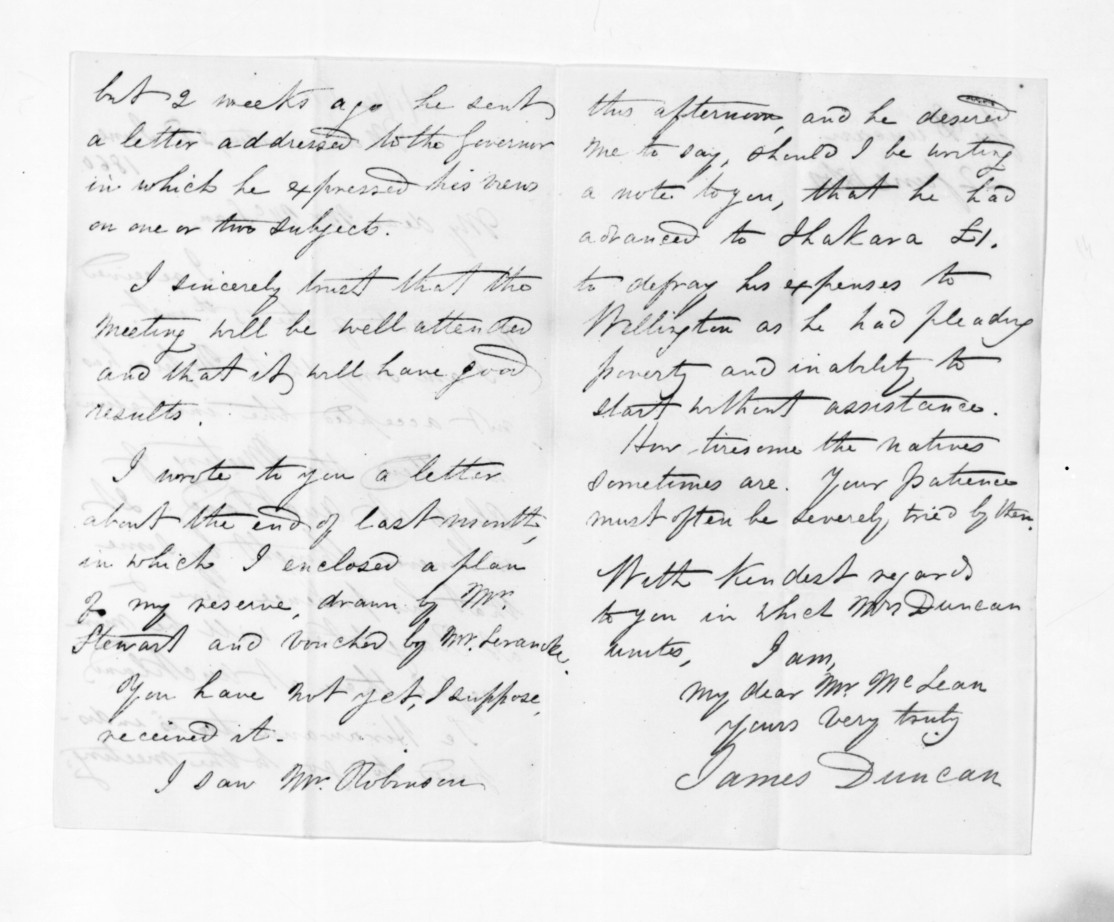 but 2 weeks ago he sent
a letter addressed to the Governor
in which he expressed his views
on one or two subjects.
I sincerely trust that the
meeting will be well attended
and that it will have good
results.
I wrote to you a letter
about the end of last month,
in which I enclosed a plan
of my reserve, drawn by Mr.
Stewart and vouched by Mr.
You have not yet, I suppose,
received it.
I saw Mr. Robinson
this afternoon, and he desired
me to say, should I be writing
a note to you, that he had
advanced to Ihakara £1.
to defray his expenses to
Wellington as he had pleading
poverty and inability to
start without assistance.
How tiresome the natives
sometimes are. Your patience
must often be severely tried by them.
With kindest regards
to you in which Mrs Duncan
unites,
I am,
my dear Mr McLean
yours very truly
James Duncan